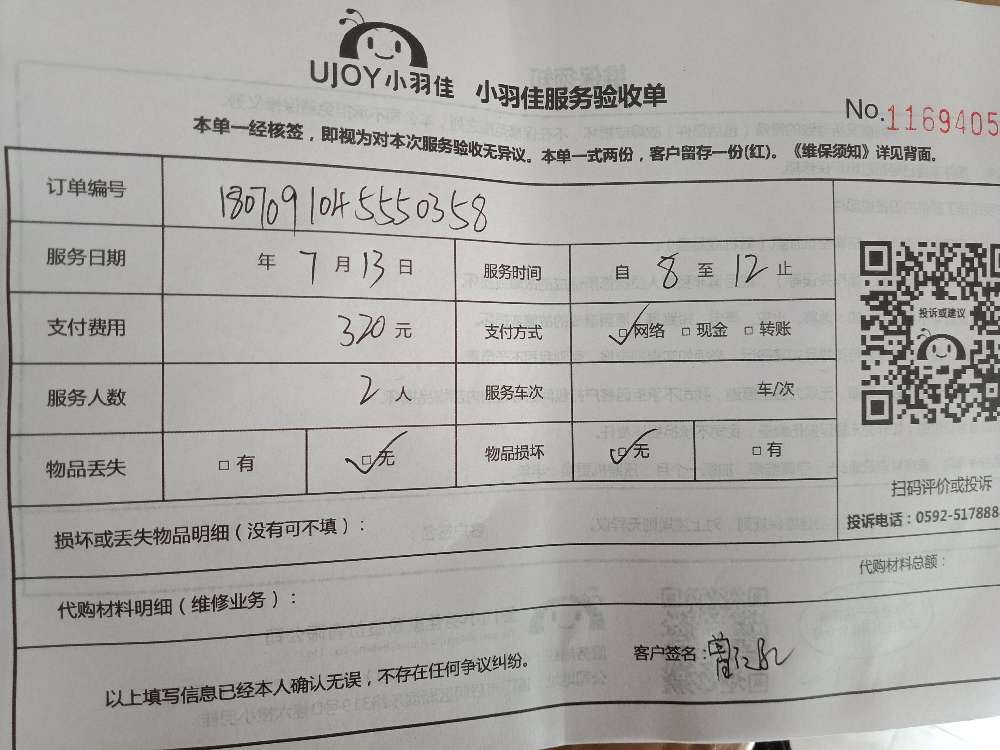 UJOY小羽佳 小羽佳服务验收单
No.1169405
本单一经核签，即视为对本次服务验收无异议。本单一式两份，客户留存一份(红)。《维保须知》详见背面。
订单编号 1807091045550358
服务日期 年 7 月 13 日 服务时间 自 8 至 12 止
支付费用 320 元 支付方式 ☑网络 □现金 □转账
服务人数 2 人 服务车次 车/次
物品丢失 □有 ☑无 物品损坏 ☑无 □有
投诉或建议
扫码评价或投诉
投诉电话：0592-517888
损坏或丢失物品明细（没有可不填）：
代购材料明细（维修业务）：
代购材料总额：
以上填写信息已经本人确认无误，不存在任何争议纠纷。
客户签名：曾